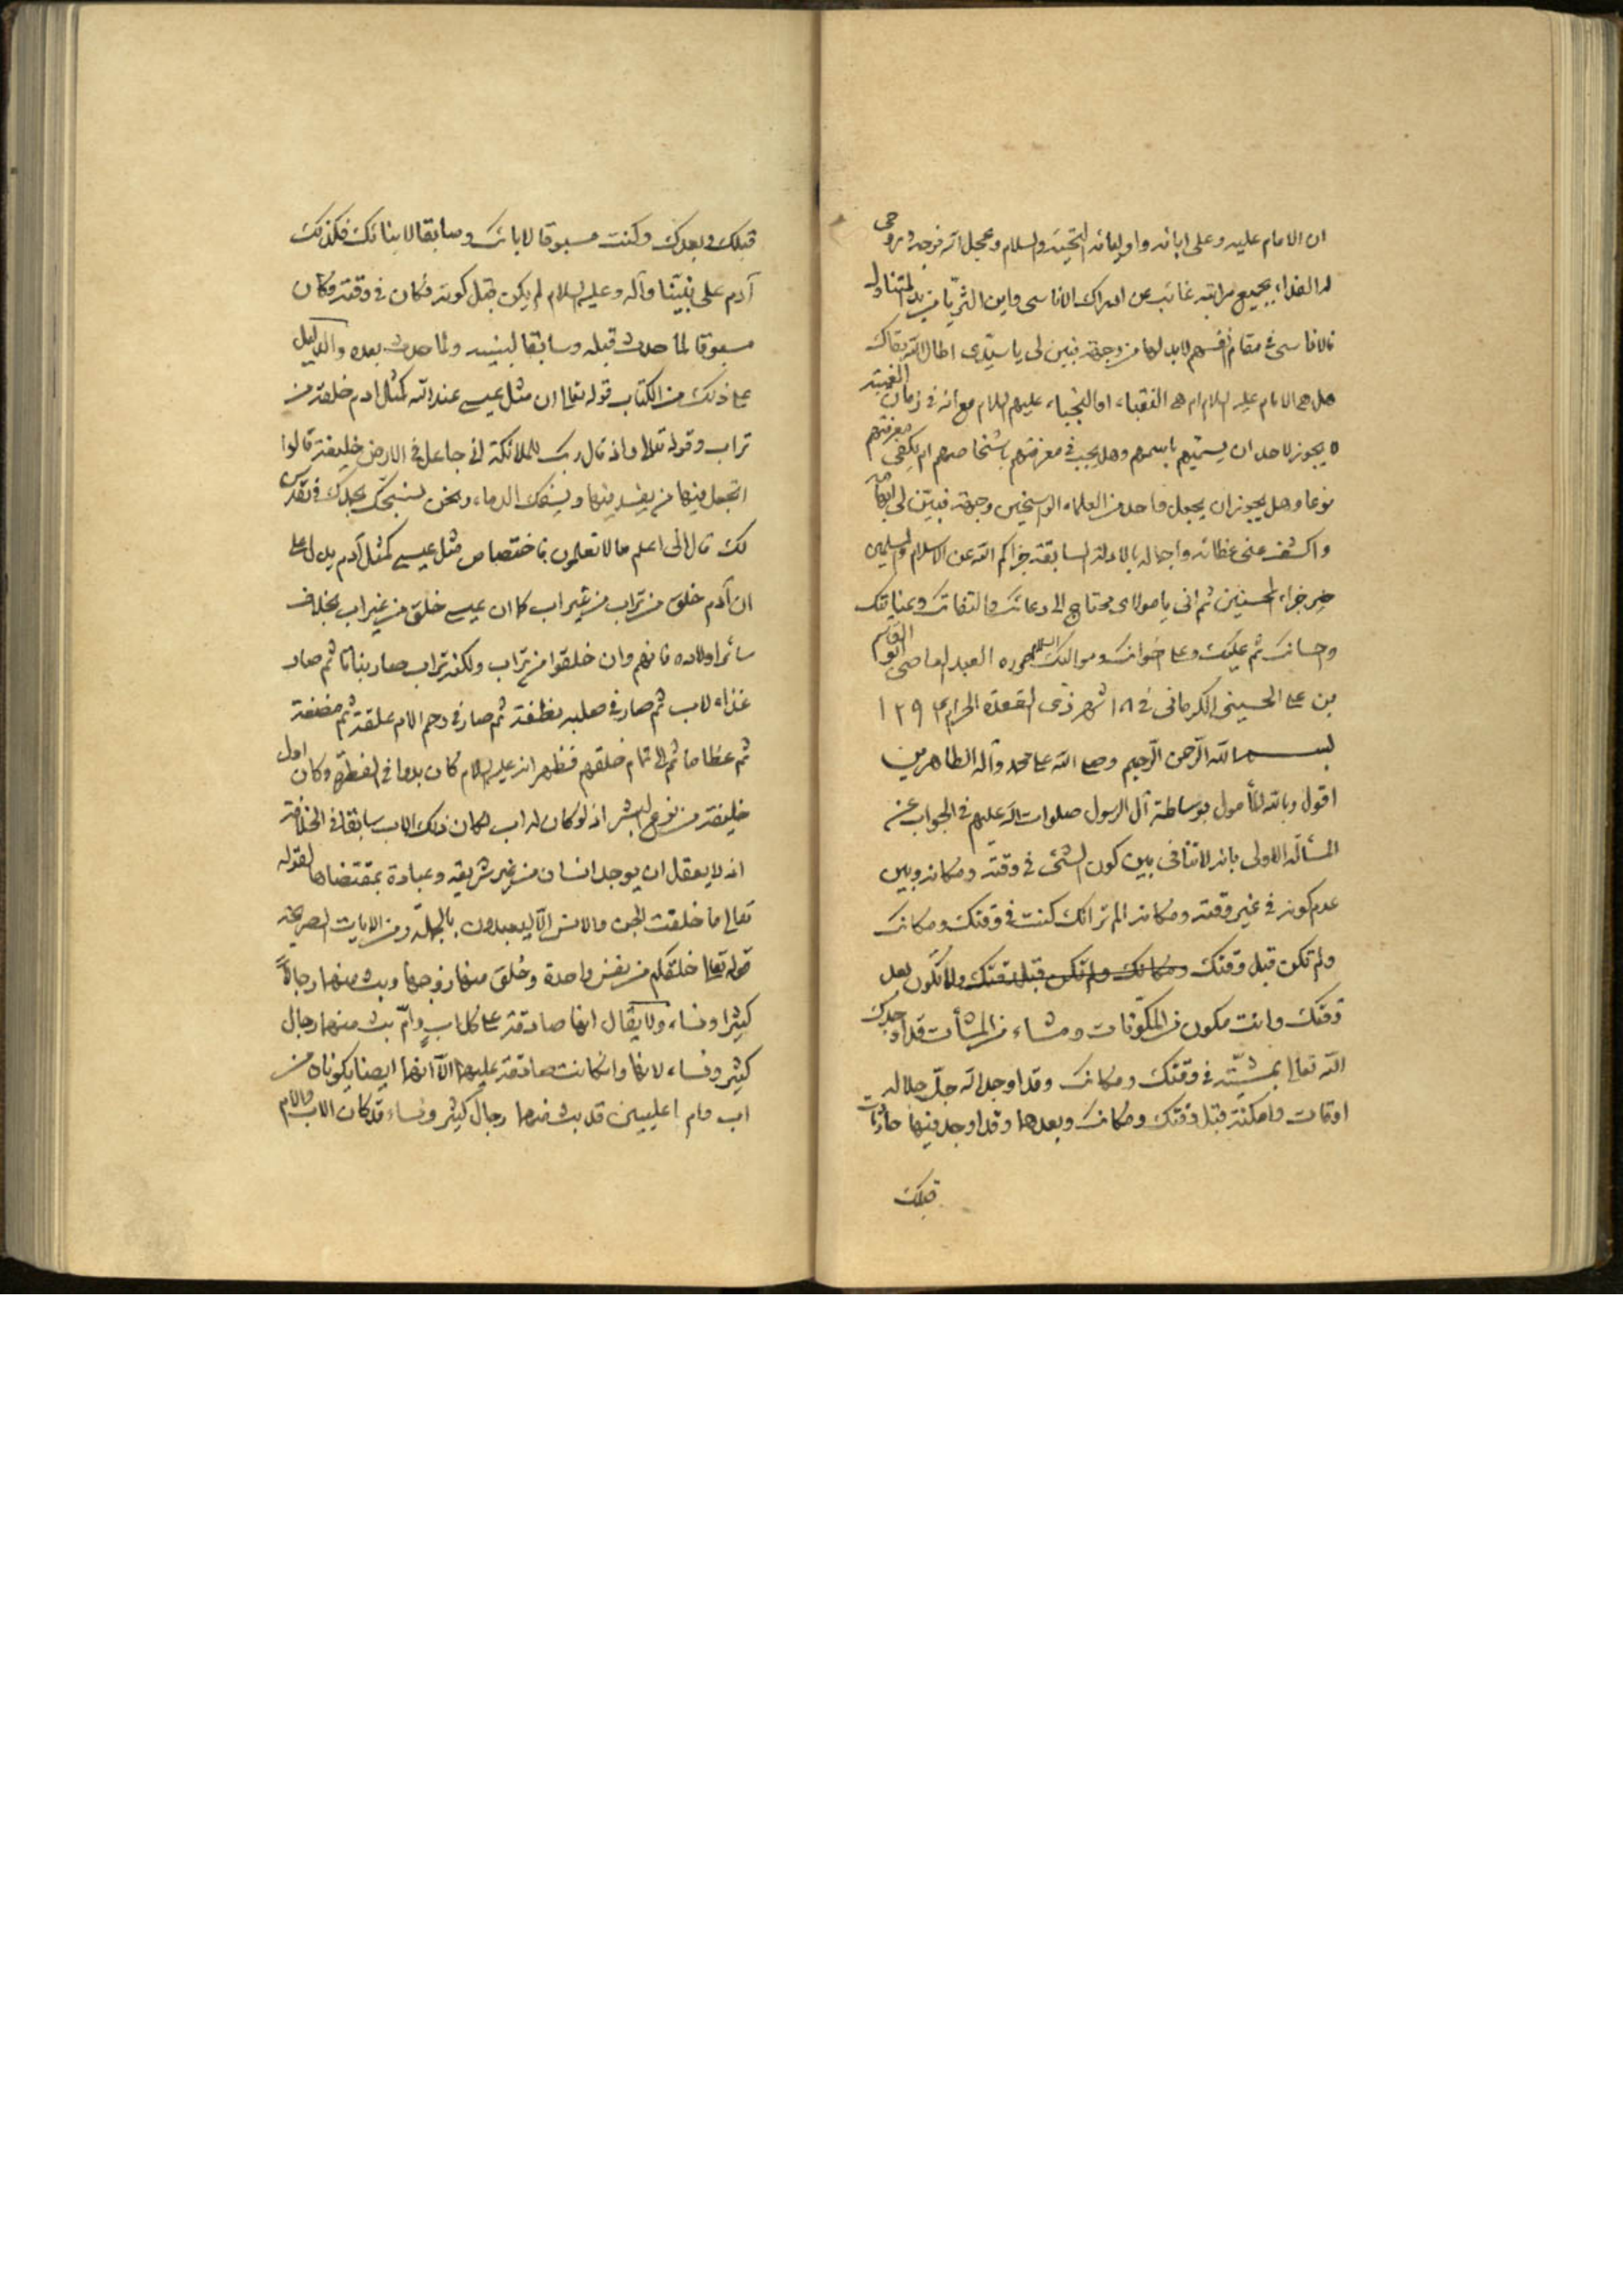 ان الامام عليه وعلى ابائه واوليائه التحية والسلام وعجل الله فرجه وروحى
له الفداء بجميع مراتبه غائب عن ادراك الاناسى واين الثريا من يد المتناول
فالاناسى فى مقام انفسهم لابد لها من وجهة فبين لى يا سيدى اطال الله بقاك
هل هى الامام عليه السلام ام هى النقباء او النجباء عليهم السلام مع انه فى زمان الغيبة
لا يجوز لاحد ان يسميهم باسمهم وهل يجب فى معرفتهم باشخاصهم ام يكفى معرفتهم
نوعا وهل يجوز ان يجعل واحد من العلماء الراسخين وجهة فبين لى ابهامه
واكشف عنى غطائه واجماله بالادلة السابقة جزاكم الله عن الاسلام والمسلمين
خير جزاء المحسنين ثم انى يا مولاى محتاج الى دعائك والتفاتك وعنايتك
واحسانك ثم عليك وعلى اخوانك ومواليك السلام حرره العبد العاصى ابوالقاسم
بن على الحسينى الكرمانى فى ١٨ شهر ذى القعدة الحرام ١٢٩٣
بسم الله الرحمن الرحيم وصلى الله على محمد وآله الطاهرين
اقول وبالله المأمول بوساطة آل الرسول صلوات الله عليهم فى الجواب عن
المسألة الاولى بانه لا تنافى بين كون الشئ فى وقته ومكانه وبين
عدم كونه فى غير وقته ومكانه الم تر انك كنت فى وقتك ومكانك
ولم تكن قبل وقتك ومكانك ولم تكن قبل وقتك ولا تكون بعد
وقتك وانت مكون من المكونات ومشاء من المشاآت قد اوجدك
الله تعالى بمشيته فى وقتك ومكانك وقد اوجد الله جل جلاله
اوقات وامكنة قبل وقتك ومكانك وبعدها وقد اوجد فيها حادثات
قبلك
قبلك وبعدك وكنت مسبوقا لابائك وسابقا لابنائك فكذلك
آدم على نبينا وآله وعليه السلام لم يكن قبل كونه فكان فى وقته وكان
مسبوقا لما حدث قبله وسابقا لبنيه ولما حدث بعده والدليل
على ذلك من الكتاب قوله تعالى ان مثل عيسى عند الله كمثل ادم خلقه من
تراب وقوله تعالى واذ قال ربك للملائكة انى جاعل فى الارض خليفة قالوا
اتجعل فيها من يفسد فيها ويسفك الدماء ونحن نسبح بحمدك ونقدس
لك قال انى اعلم ما لا تعلمون فاختصاص مثل عيسى كمثل آدم يدل على
ان آدم خلق من تراب من غير اب كما ان عيسى خلق من غير اب بخلاف
سائر اولاده فانهم وان خلقوا من تراب ولكنه تراب صار نباتا ثم صار
غذاء لاب ثم صار فى صلبه نطفة ثم صار فى رحم الام علقة ثم مضغة
ثم عظاما ثم الى تمام خلقهم فظهر انه عليه السلام كان بدوا فى الفطرة وكان اول
خليفة من نوع البشر اذ لو كان له اب لكان ذلك الاب سابقا فى الخلافة
اذ لا يعقل ان يوجد انسان من غير شريعة وعبادة بمقتضاها لقوله
تعالى ما خلقت الجن والانس الا ليعبدون بالجملة ومن الايات الصريحة
قوله تعالى خلقكم من نفس واحدة وخلق منها زوجها وبث منهما رجالاً
كثيرا ونساء ولا يقال انها صادقة على كل اب وام بث منهما رجال
كثير ونساء لانها وان كانت صادقة عليهما الا انهما ايضا يكونان من
اب وام اعليين قد بث منهما رجال كثير ونساء قد كان الاب والام